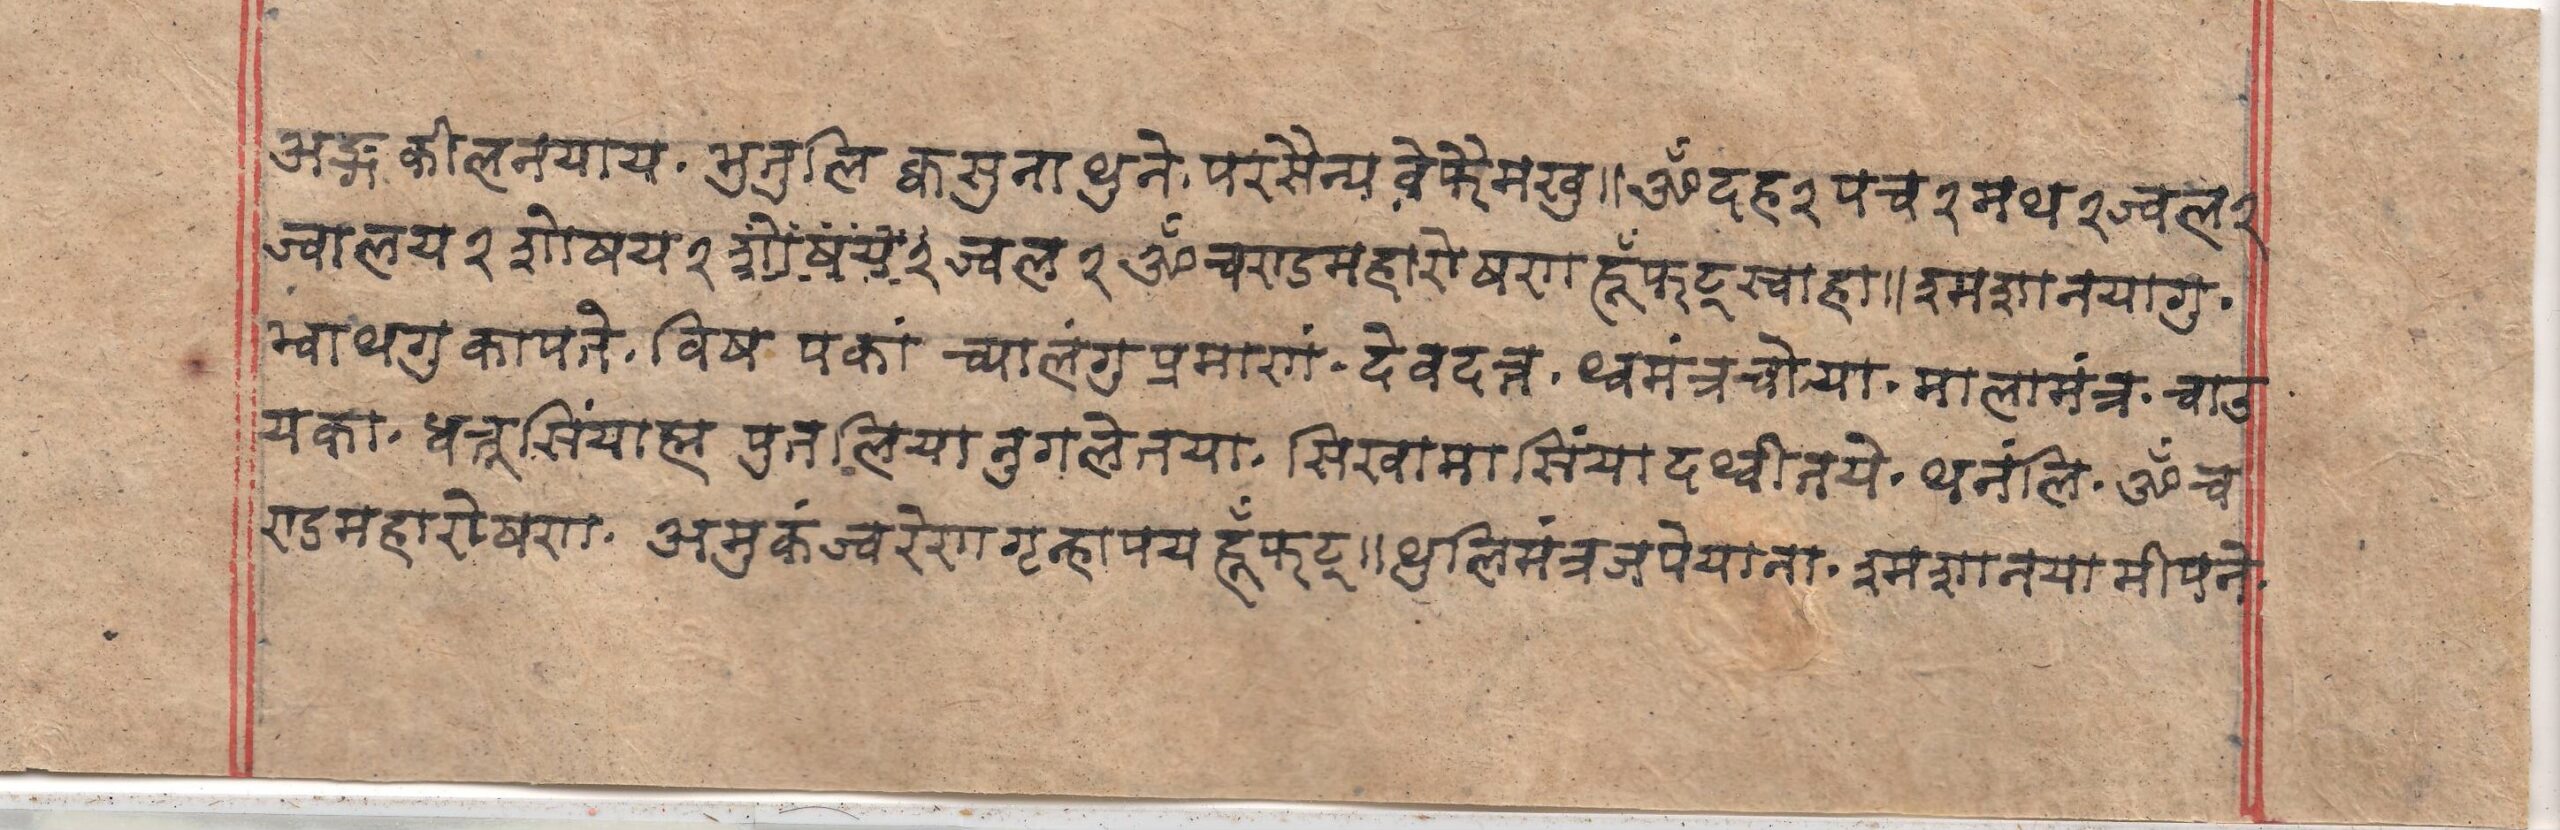 अङ्ग कीलनयाय. भुतुलि क्वसुना थुने. परसैन्य वेफैमखु॥ ॐ दह२ पच२ मथ२ ज्वल२
ज्वालय२ शोषय२ ज्वल२ ॐ चण्डमहारोषण हूँ फट् स्वाहा॥ श्मशानयागु.
म्वाथगु कापते. विष पकां च्यालंगु प्रमाणं. देवदत्त. ध्वमंत्र चोया. मालामंत्र. चाउ
यका. धत्तूसिंयाह्म पुतलिया नुगले तया. सिखामा सिंया दथ्वी तये. थनंलि. ॐ च
ण्डमहारोषण. अमुकं ज्वरेण गृह्नापय हूँ फट्॥ थुलिमंत्र जपेयाना. श्मशानया मीपते.